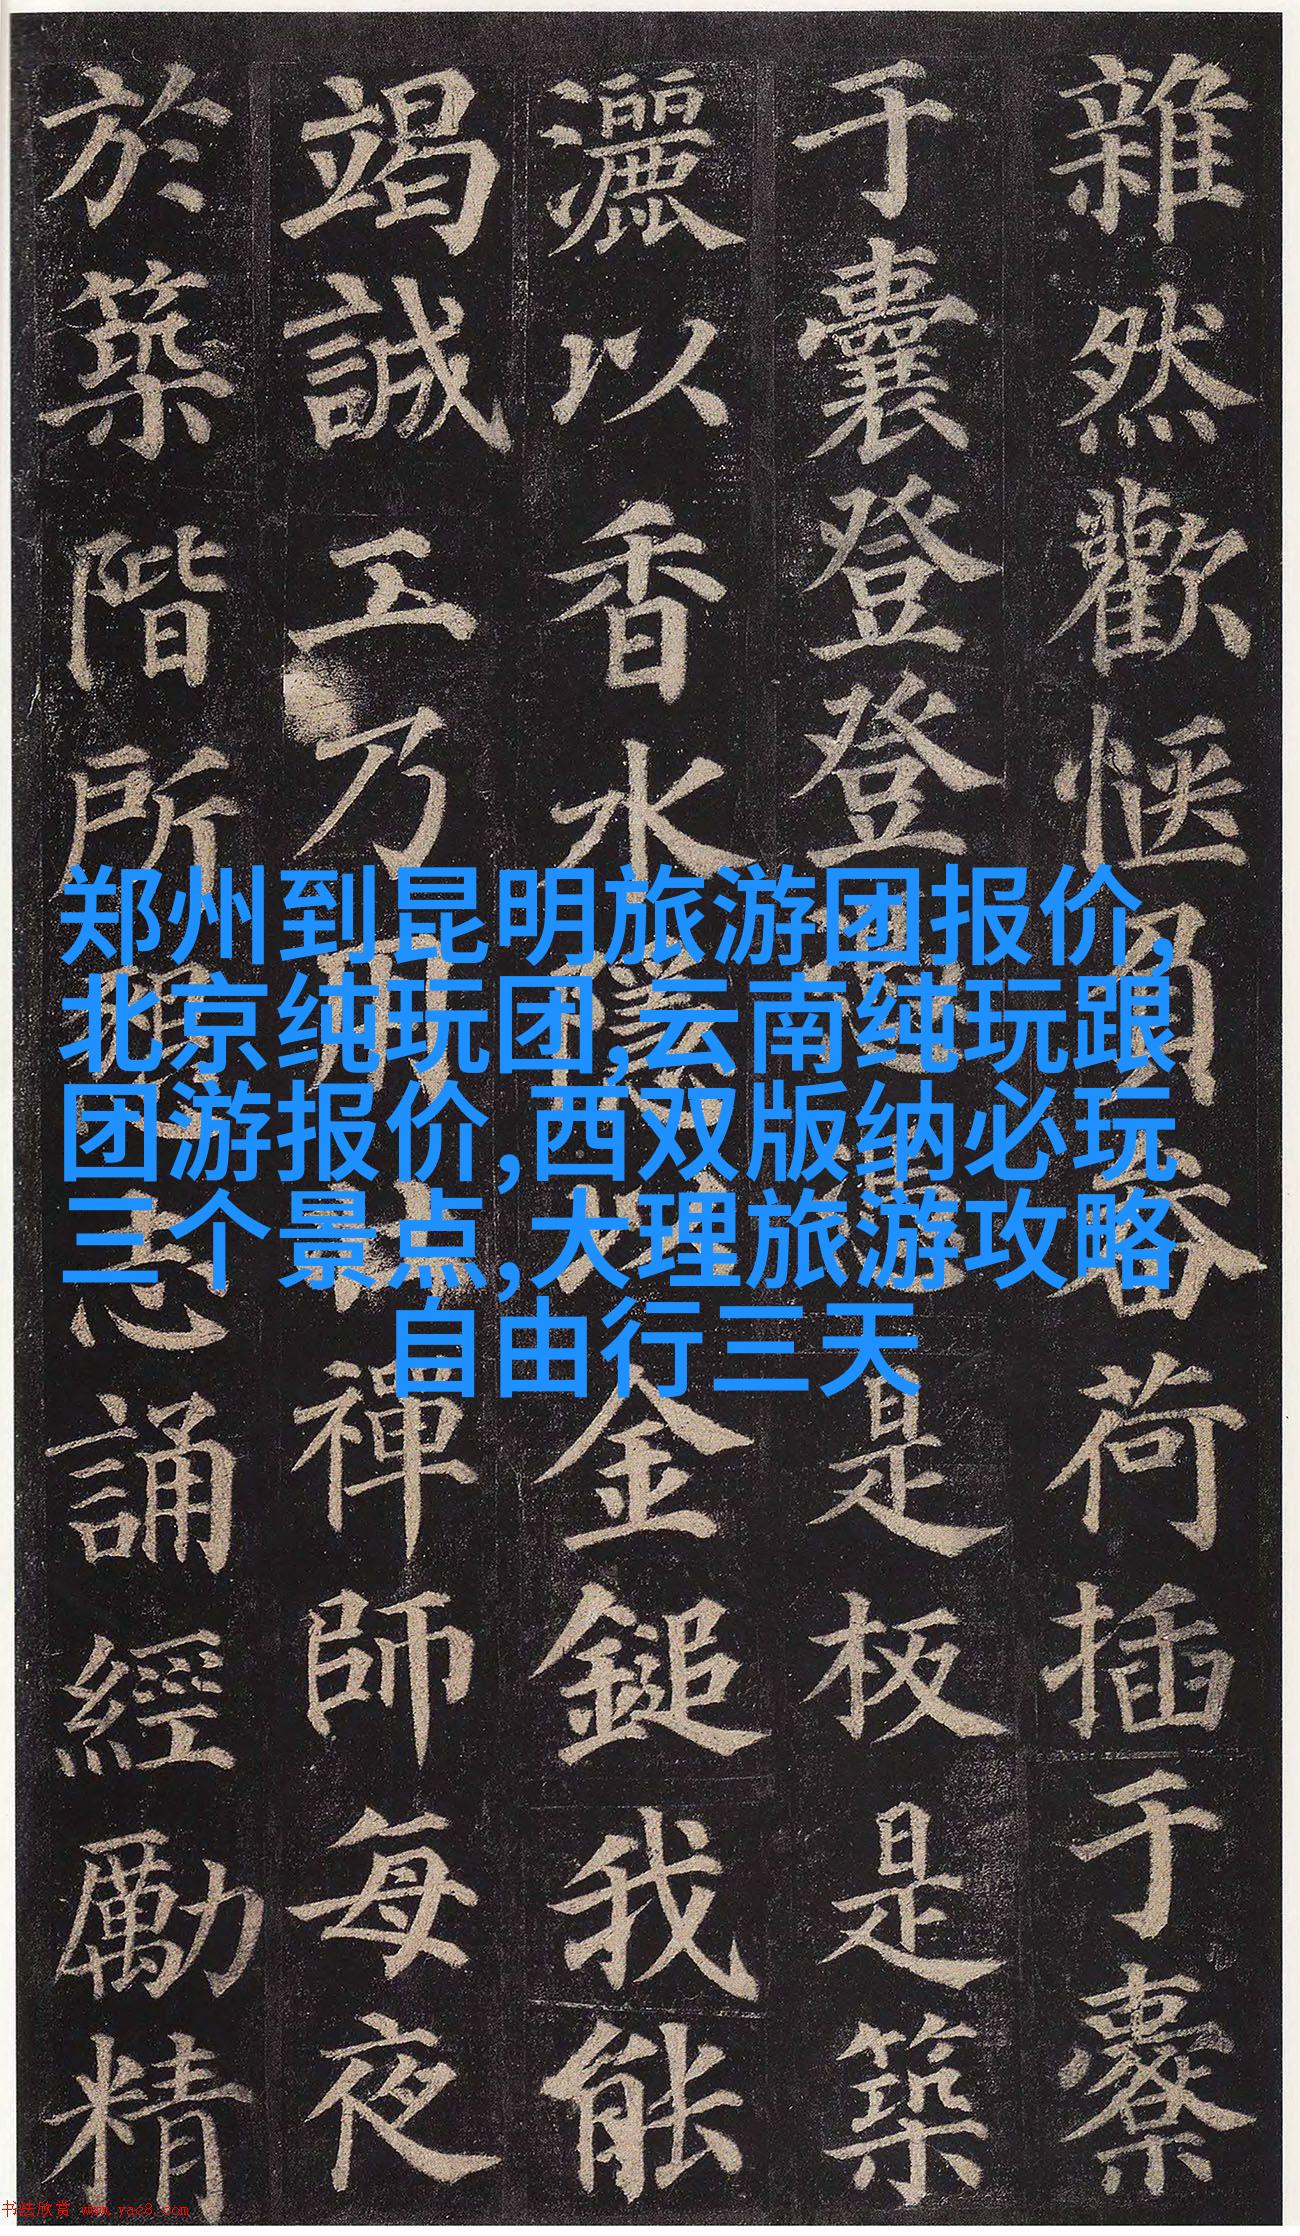 雜然歡愜負畚荷插于橐
于囊登登是板是築
灑以香水隱以金鎚我能
竭誠工乃用禪師每夜
於築階所懸志誦經勵精
郑州到昆明旅游团报价,
北京纯玩团,云南纯玩跟
团游报价,西双版纳必玩
三个景点,大理旅游攻略
自由行三天
书法欣赏 www.yac8.com